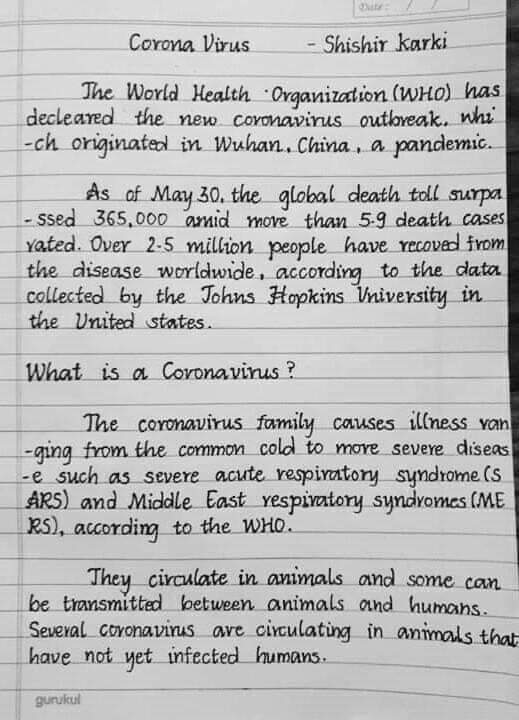 Date: / /
Corona Virus - Shishir Karki
The World Health Organization (WHO) has
decleared the new coronavirus outbreak, whi
-ch originated in Wuhan, China, a pandemic.
As of May 30, the global death toll surpa
-ssed 365,000 amid more than 5.9 death cases
rated. Over 2.5 million people have recoved from
the disease worldwide, according to the data
collected by the Johns Hopkins University in
the United states.
What is a Coronavirus?
The coronavirus family causes illness ran
-ging from the common cold to more severe diseas
-e such as severe acute respiratory syndrome (S
ARS) and Middle East respiratory syndromes (ME
RS), according to the WHO.
They circulate in animals and some can
be transmitted between animals and humans.
Several coronavirus are circulating in animals that
have not yet infected humans.
gurukul